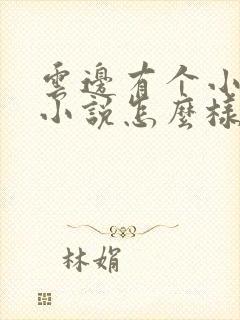 雲邊有个小
小說怎麼樣
林娟